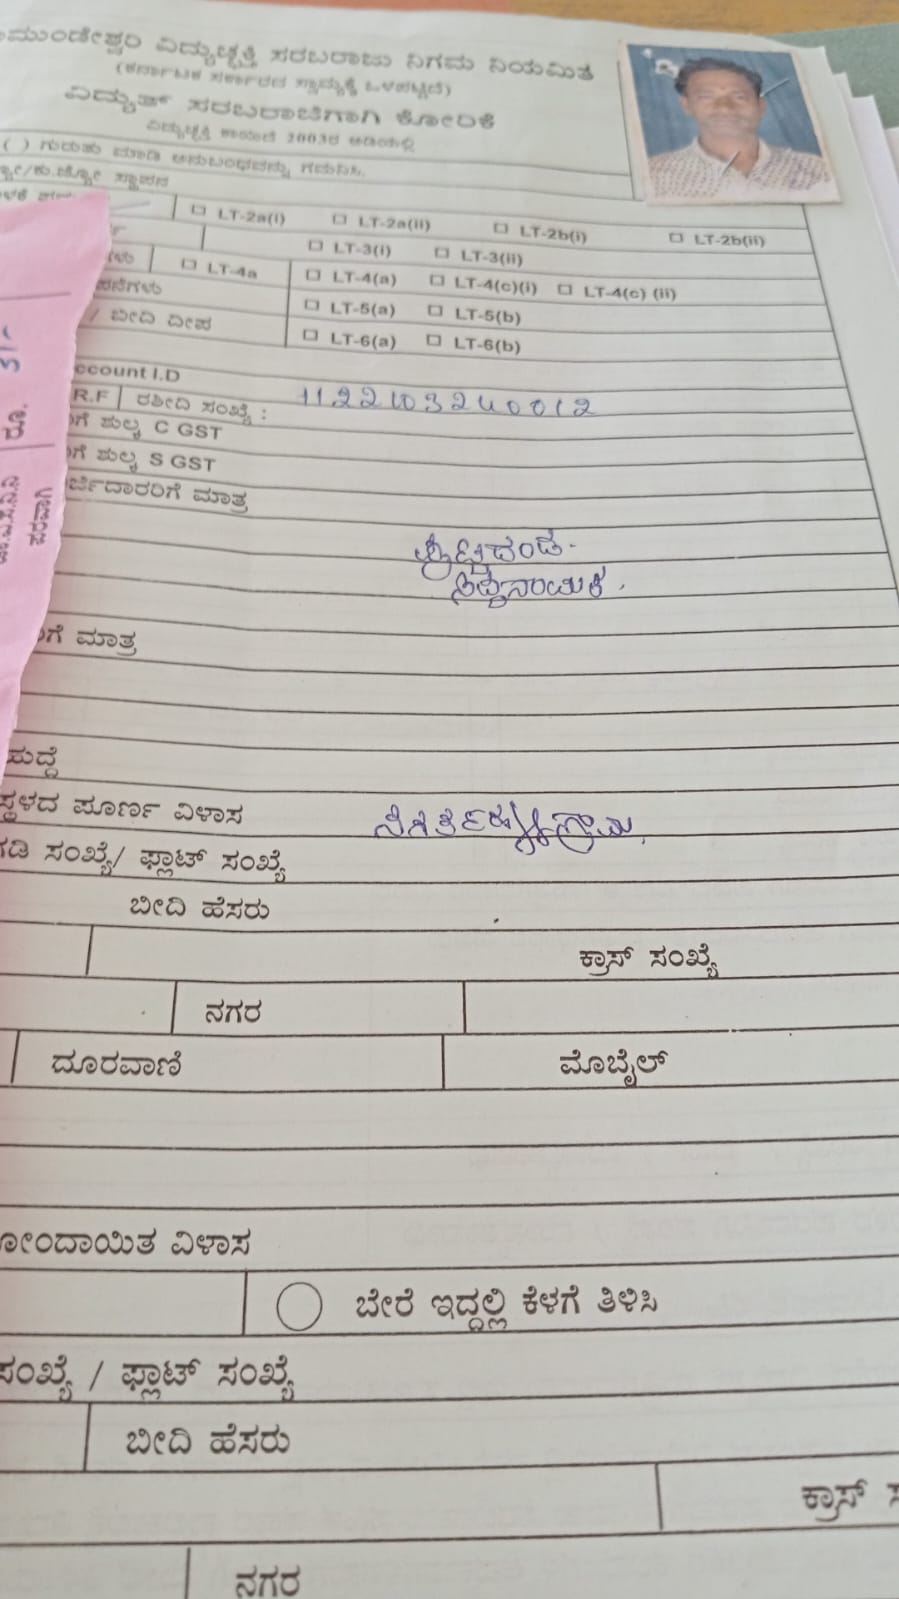 ಮುಂಡೇಶ್ವರಿ ವಿದ್ಯುಚ್ಛಕ್ತಿ ಸರಬರಾಜು ನಿಗಮ ನಿಯಮಿತ
(ಕರ್ನಾಟಕ ಸರ್ಕಾರದ ಸ್ವಾಮ್ಯಕ್ಕೆ ಒಳಪಟ್ಟಿದೆ)
ವಿದ್ಯುತ್ ಸರಬರಾಜಿಗಾಗಿ ಕೋರಿಕೆ
ವಿದ್ಯುಚ್ಛಕ್ತಿ ಕಾಯಿದೆ 2003ರ ಅಡಿಯಲ್ಲಿ
( ) ಗುರುತು ಮಾಡಿ ಅನುಬಂಧವನ್ನು ಗಮನಿಸಿ.
ಸ್ಥಾಪನ
LT-2a(i) LT-2a(ii) LT-2b(i) LT-2b(ii)
LT-3(i) LT-3(ii)
LT-4a LT-4(a) LT-4(c)(i) LT-4(c) (ii)
LT-5(a) LT-5(b)
/ ಬೀದಿ ದೀಪ LT-6(a) LT-6(b)
ccount I.D
R.F ರಶೀದಿ ಸಂಖ್ಯೆ : 1122103240012
ಗೆ ಶುಲ್ಕ C GST
ಗೆ ಶುಲ್ಕ S GST
ರ್ಜಿದಾರರಿಗೆ ಮಾತ್ರ
ರೂ.
ಪರವಾಗಿ
ಗೆ ಮಾತ್ರ
ಹುದ್ದೆ
ಸ್ಥಳದ ಪೂರ್ಣ ವಿಳಾಸ
ಗಡಿ ಸಂಖ್ಯೆ/ ಫ್ಲಾಟ್ ಸಂಖ್ಯೆ
ಬೀದಿ ಹೆಸರು
ಕ್ರಾಸ್ ಸಂಖ್ಯೆ
ನಗರ
ದೂರವಾಣಿ ಮೊಬೈಲ್
ೋಂದಾಯಿತ ವಿಳಾಸ
ಬೇರೆ ಇದ್ದಲ್ಲಿ ಕೆಳಗೆ ತಿಳಿಸಿ
ಸಂಖ್ಯೆ / ಫ್ಲಾಟ್ ಸಂಖ್ಯೆ
ಬೀದಿ ಹೆಸರು
ಕ್ರಾಸ್ ಸ
ನಗರ